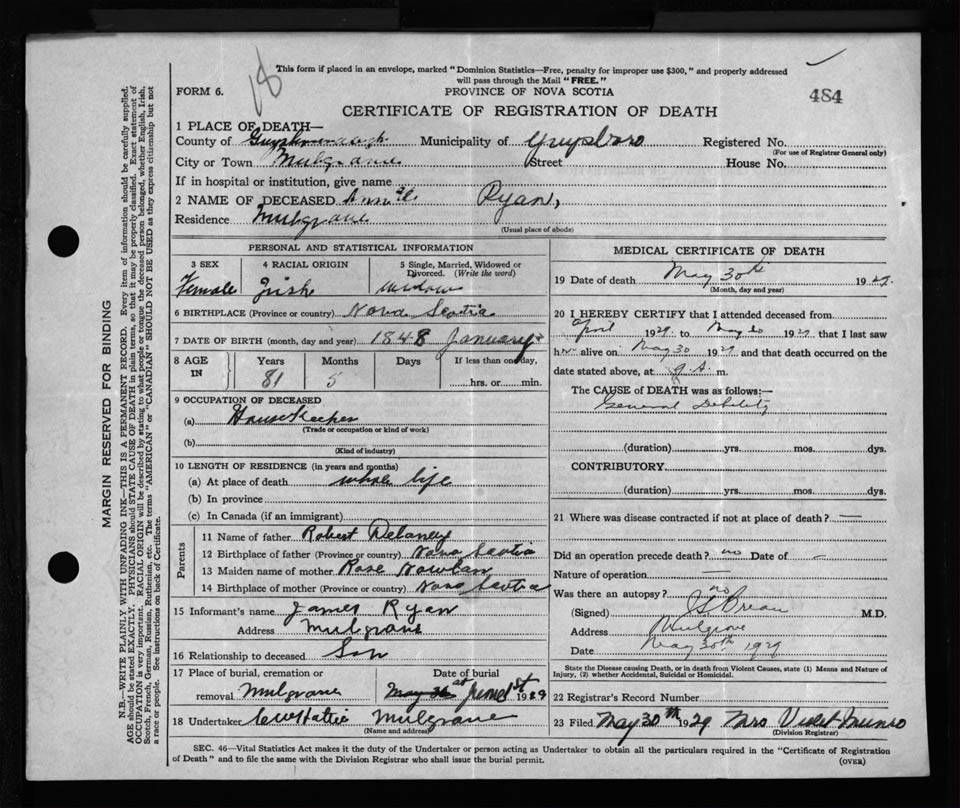 18
This form if placed in an envelope, marked "Dominion Statistics—Free, penalty for improper use $300," and properly addressed
will pass through the Mail "FREE."
FORM 6. PROVINCE OF NOVA SCOTIA 484
CERTIFICATE OF REGISTRATION OF DEATH
1 PLACE OF DEATH—
County of Guysborough Municipality of Guysboro Registered No.
(For use of Registrar General only)
City or Town Mulgrave Street House No.
If in hospital or institution, give name
2 NAME OF DECEASED Ryan,
Residence Mulgrave
(Usual place of abode)
PERSONAL AND STATISTICAL INFORMATION
3 SEX 4 RACIAL ORIGIN 5 Single, Married, Widowed or Divorced. (Write the word)
Female Irish widow
6 BIRTHPLACE (Province or country) Nova Scotia
7 DATE OF BIRTH (month, day and year) 1848 January
8 AGE IN Years Months Days If less than one day,
81 5 hrs. or min.
9 OCCUPATION OF DECEASED
(a) House Keeper
(Trade or occupation or kind of work)
(b)
(Kind of industry)
10 LENGTH OF RESIDENCE (in years and months)
(a) At place of death whole life
(b) In province
(c) In Canada (if an immigrant)
Parents
11 Name of father Robert Delaney
12 Birthplace of father (Province or country) Nova Scotia
13 Maiden name of mother Rose Nowlan
14 Birthplace of mother (Province or country) Nova Scotia
15 Informant's name James Ryan
Address Mulgrave
16 Relationship to deceased Son
17 Place of burial, cremation or removal Mulgrave Date of burial June 1st 1929
18 Undertaker Mulgrave
(Name and address)
MEDICAL CERTIFICATE OF DEATH
19 Date of death May 30th 1929.
(Month, day and year)
20 I HEREBY CERTIFY that I attended deceased from
April 1929 to May 30 1929 that I last saw
her alive on May 30 1929 and that death occurred on
date stated above, at 9 A. m.
The CAUSE of DEATH was as follows:—
General Debility
(duration) yrs. mos. dys.
CONTRIBUTORY
(duration) yrs. mos. dys.
21 Where was disease contracted if not at place of death? —
Did an operation precede death? no Date of —
Nature of operation —
Was there an autopsy? no
(Signed) M.D.
Address Mulgrave
Date May 30th 1929
State the Disease causing Death, or in death from Violent Causes, state (1) Means and Nature of
Injury, (2) whether Accidental, Suicidal or Homicidal.
22 Registrar's Record Number
23 Filed May 30th 1929 Mrs Violet Munro
(Division Registrar)
SEC. 46—Vital Statistics Act makes it the duty of the Undertaker or person acting as Undertaker to obtain all the particulars required in the "Certificate of Registration
of Death" and to file the same with the Division Registrar who shall issue the burial permit. (OVER)
MARGIN RESERVED FOR BINDING
N.B.—WRITE PLAINLY WITH UNFADING INK—THIS IS A PERMANENT RECORD. Every item of information should be carefully supplied.
AGE should be stated EXACTLY. PHYSICIANS should STATE CAUSE OF DEATH in plain terms, so that it may be properly classified. Exact statement of
OCCUPATION is very important. RACIAL ORIGIN will be described by stating to what people or tongue the deceased person belonged, whether English, Irish,
Scotch, French, German, Russian, Ruthenian, etc. The terms "AMERICAN" or "CANADIAN" SHOULD NOT BE USED as they express citizenship but not
a race or people. See instructions on back of Certificate.